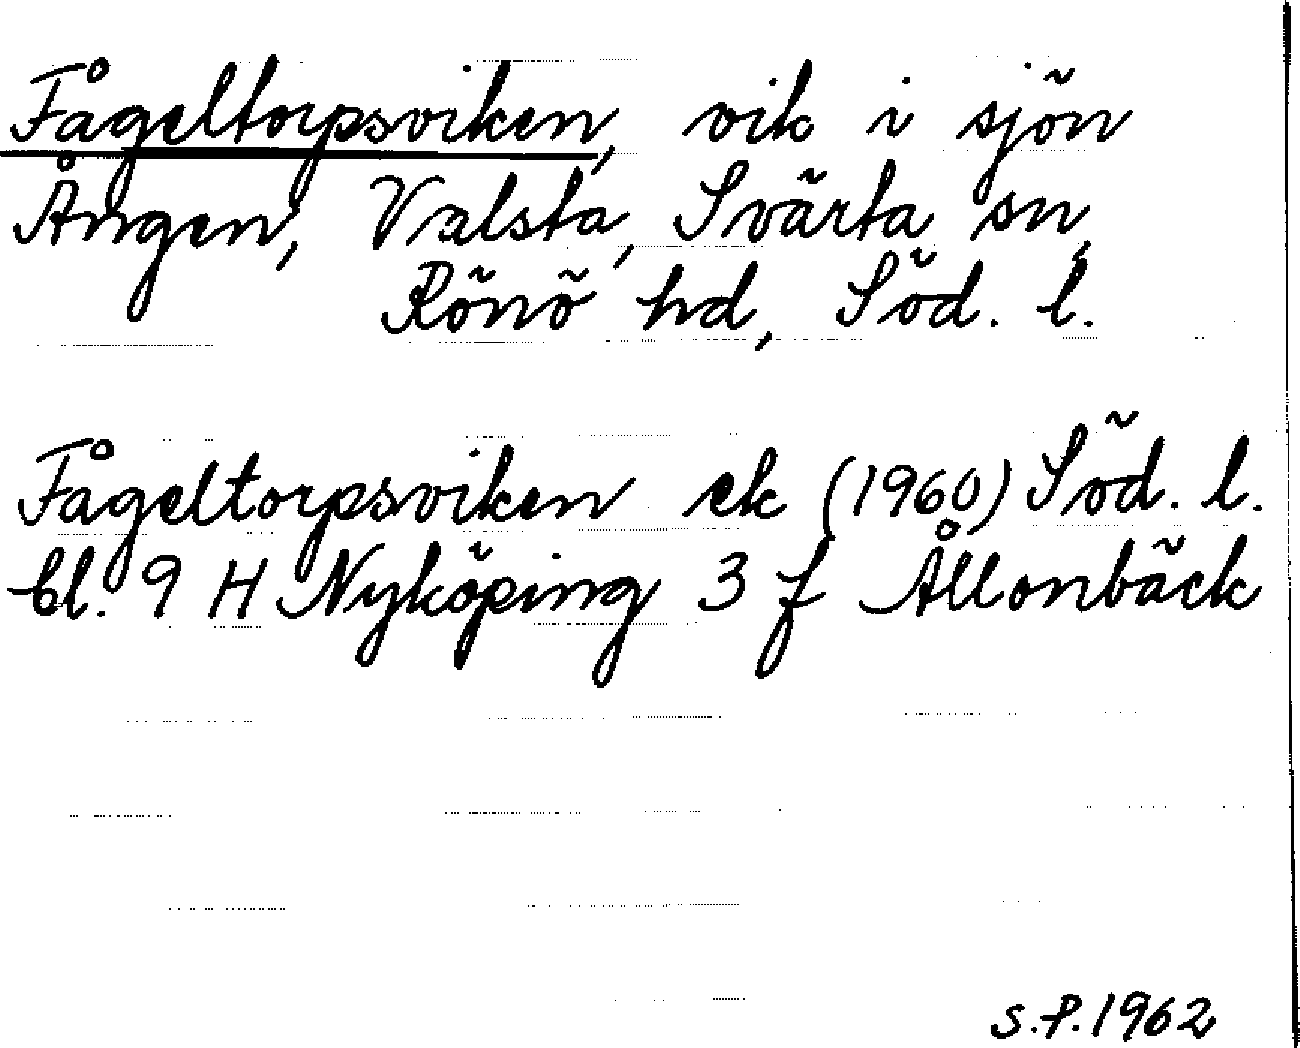 Fågeltorpsviken, vik i sjön
Ången, Valsta, Svärta sn,
Rönö hd, Söd. l.
Fågeltorpsviken ek (1960) Söd. l.
bl. 9 H Nyköping 3 f Ållonbäck
S.P. 1962